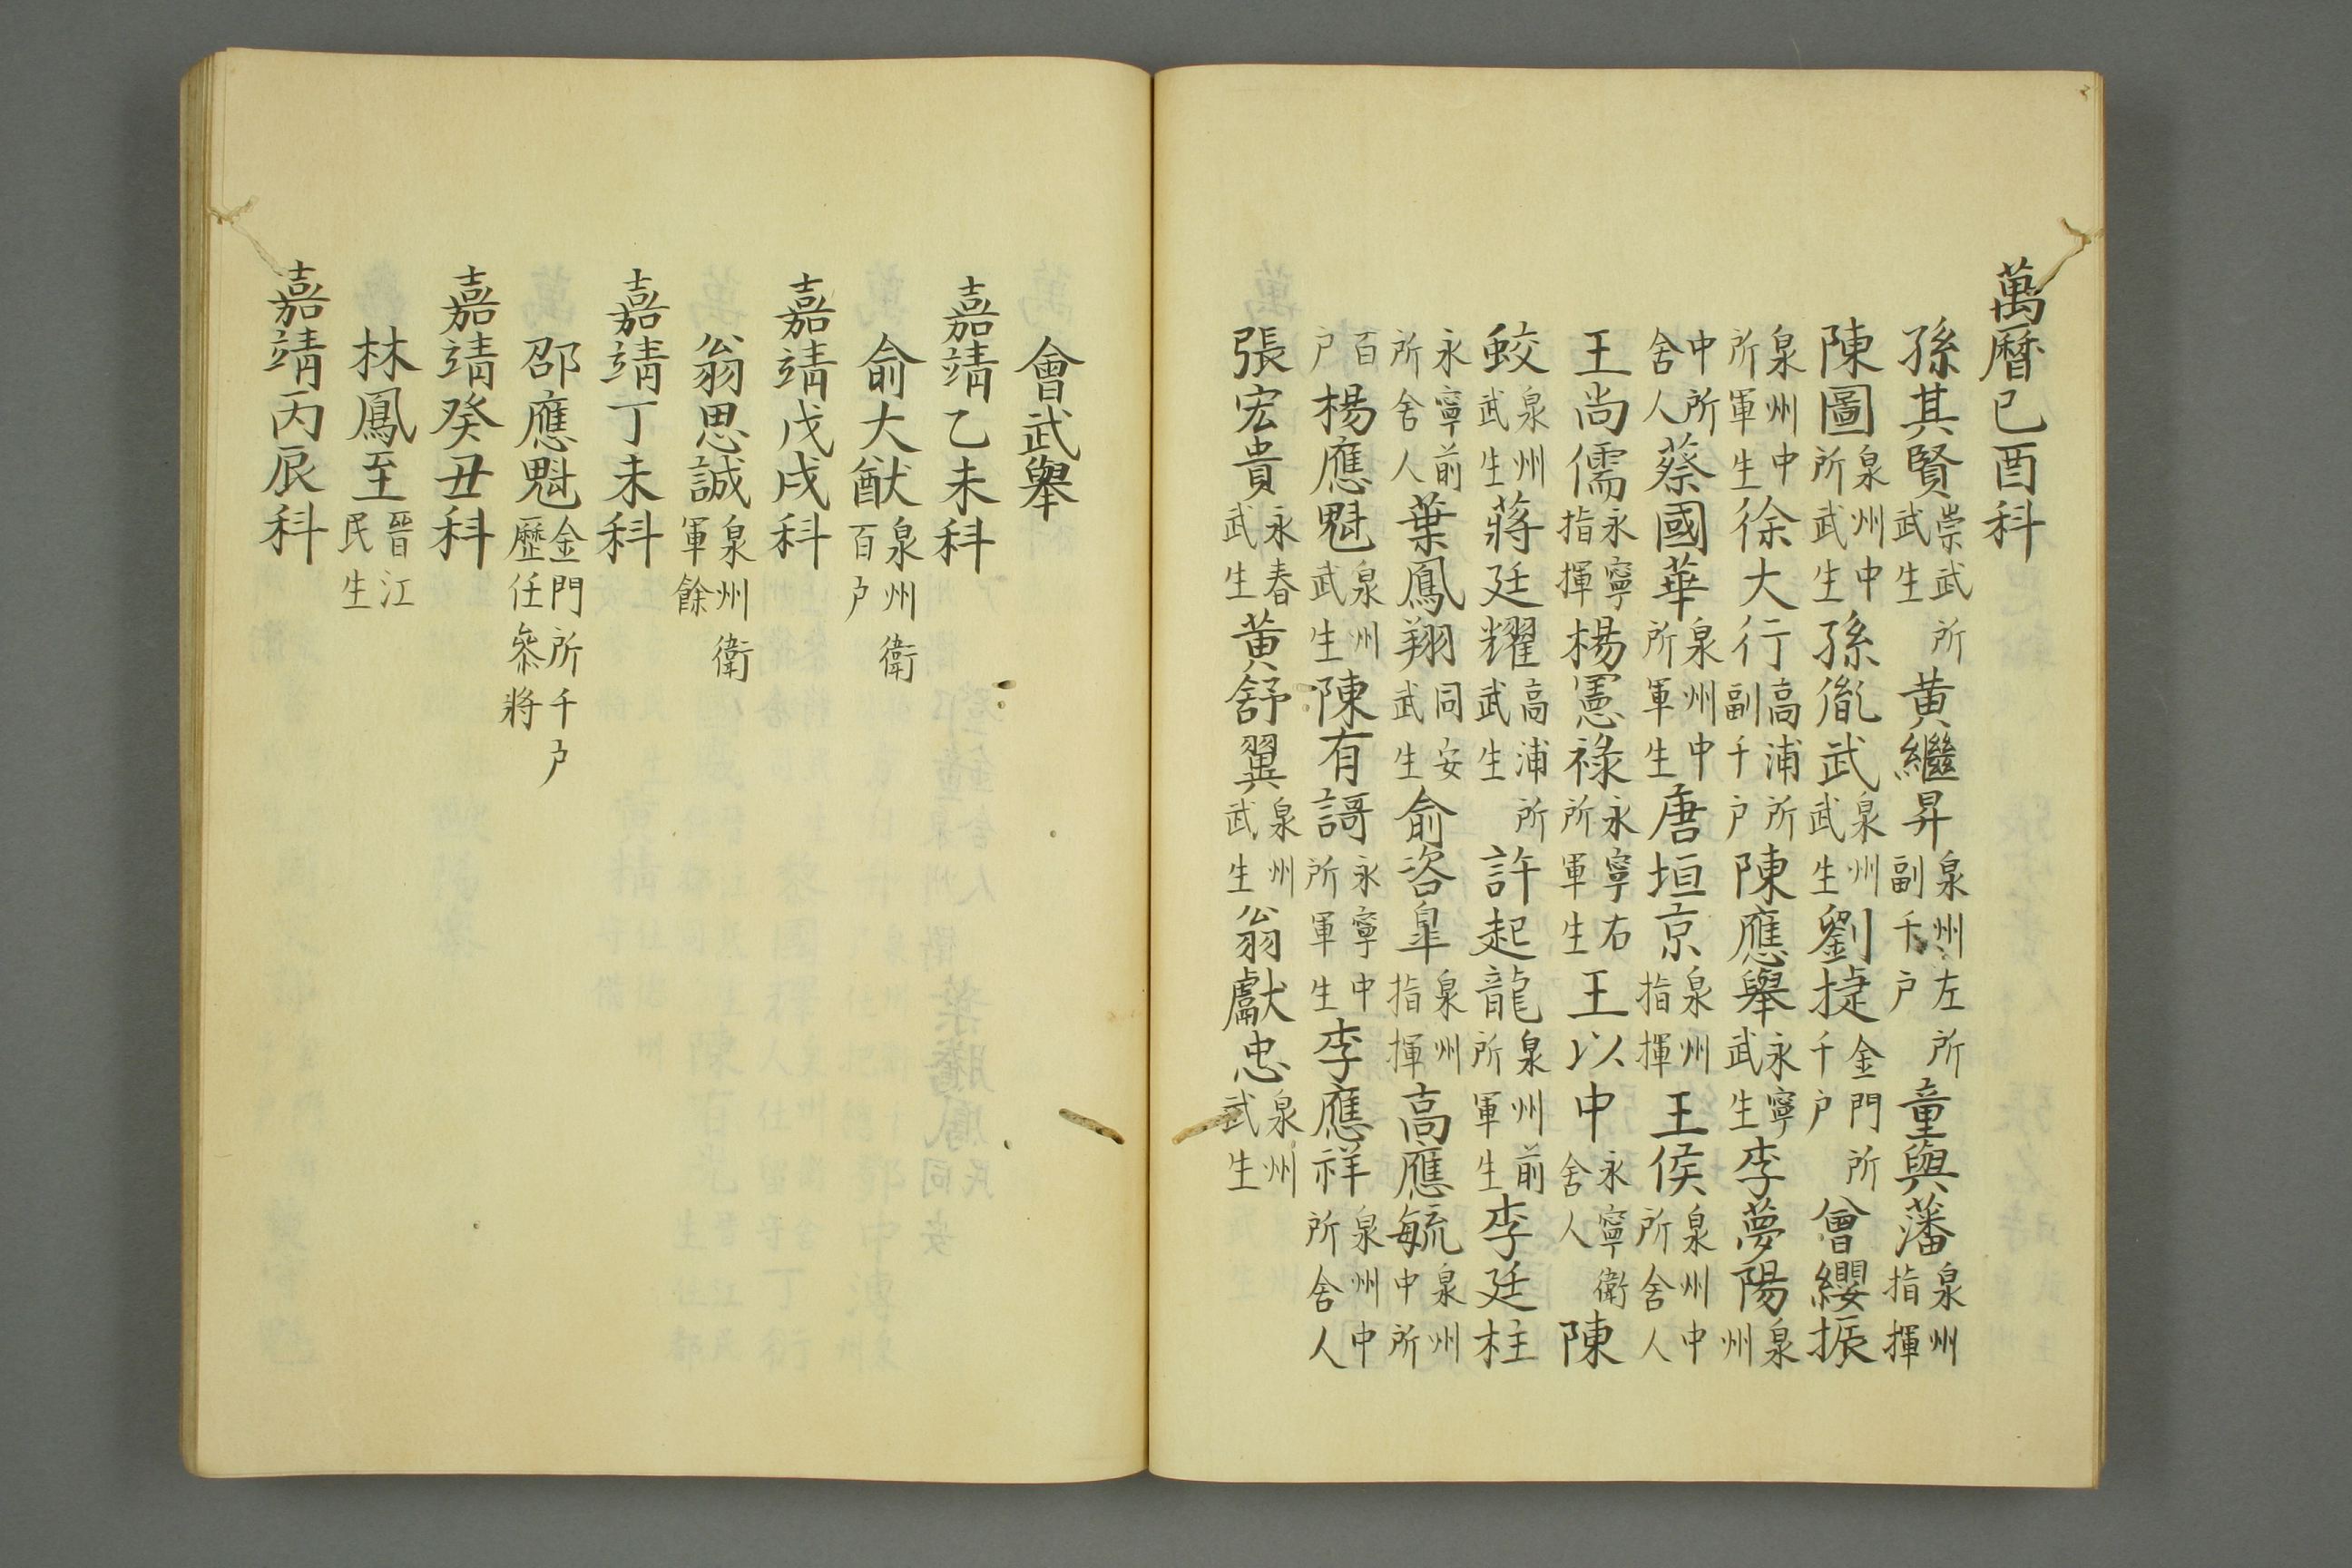 萬曆已酉科
孫其賢崇武所武生黄繼昇泉州左所副千户童與藩泉州指揮
陳圖泉州中所武生孫胤武泉州武生劉捷金門所千户曾纓振
泉州中所軍生徐大行高浦所副千户陳應舉永寧武生李夢陽泉州
中所舍人蔡國華泉州中所軍生唐垣京泉州指揮王侯泉州中所舍人
王尚儒永寧指揮楊憲祿永寧右所軍生王以中永寧衛舍人陳
蛟泉州武生蔣廷耀高浦所武生許起龍泉州前所軍生李廷柱
永寧前所舍人葉鳳翔同安武生俞咨皐泉州指揮高應毓泉州中所
百户楊應魁泉州武生陳有謌永寧中所軍生李應祥泉州中所舍人
張宏貴永春武生黄舒翼泉州武生翁獻忠泉州武生
會武舉
嘉靖乙未科
俞大猷泉州衛百户
嘉靖戊戌科
翁思誠泉州衛軍餘
嘉靖丁未科
邵應魁金門所千户歷任叅將
嘉靖癸丑科
林鳳至晉江民生
嘉靖丙辰科